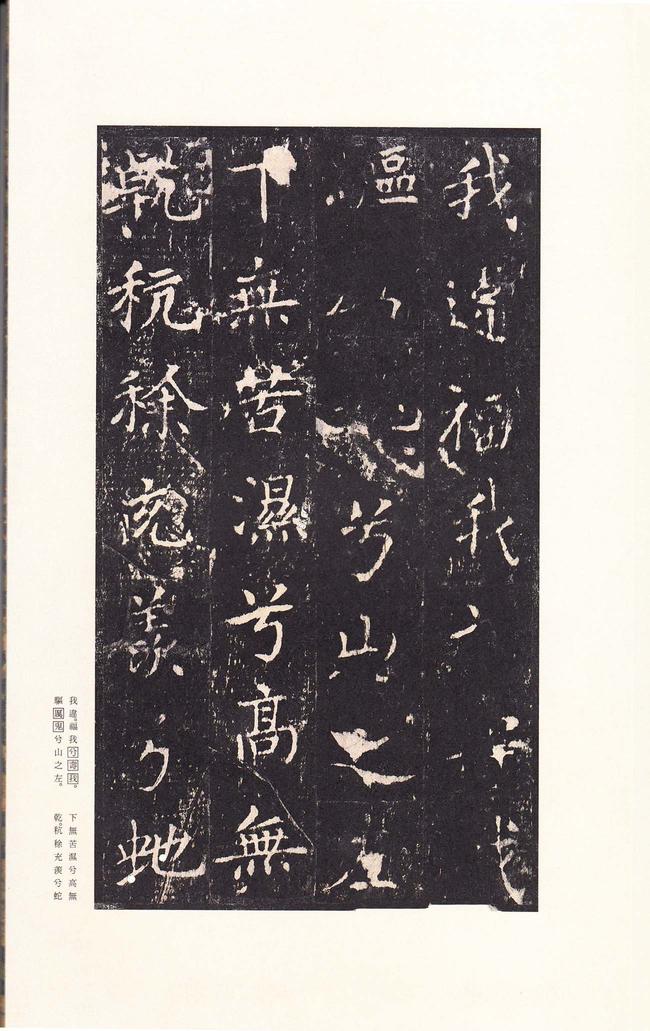 我違福我我
驅兮山之左
下無苦濕兮高無
乾秔稌充羨兮蛇
我違。福我兮壽我。
驅厲鬼兮山之左。
下無苦濕兮高無
乾。秔稌充羨兮蛇